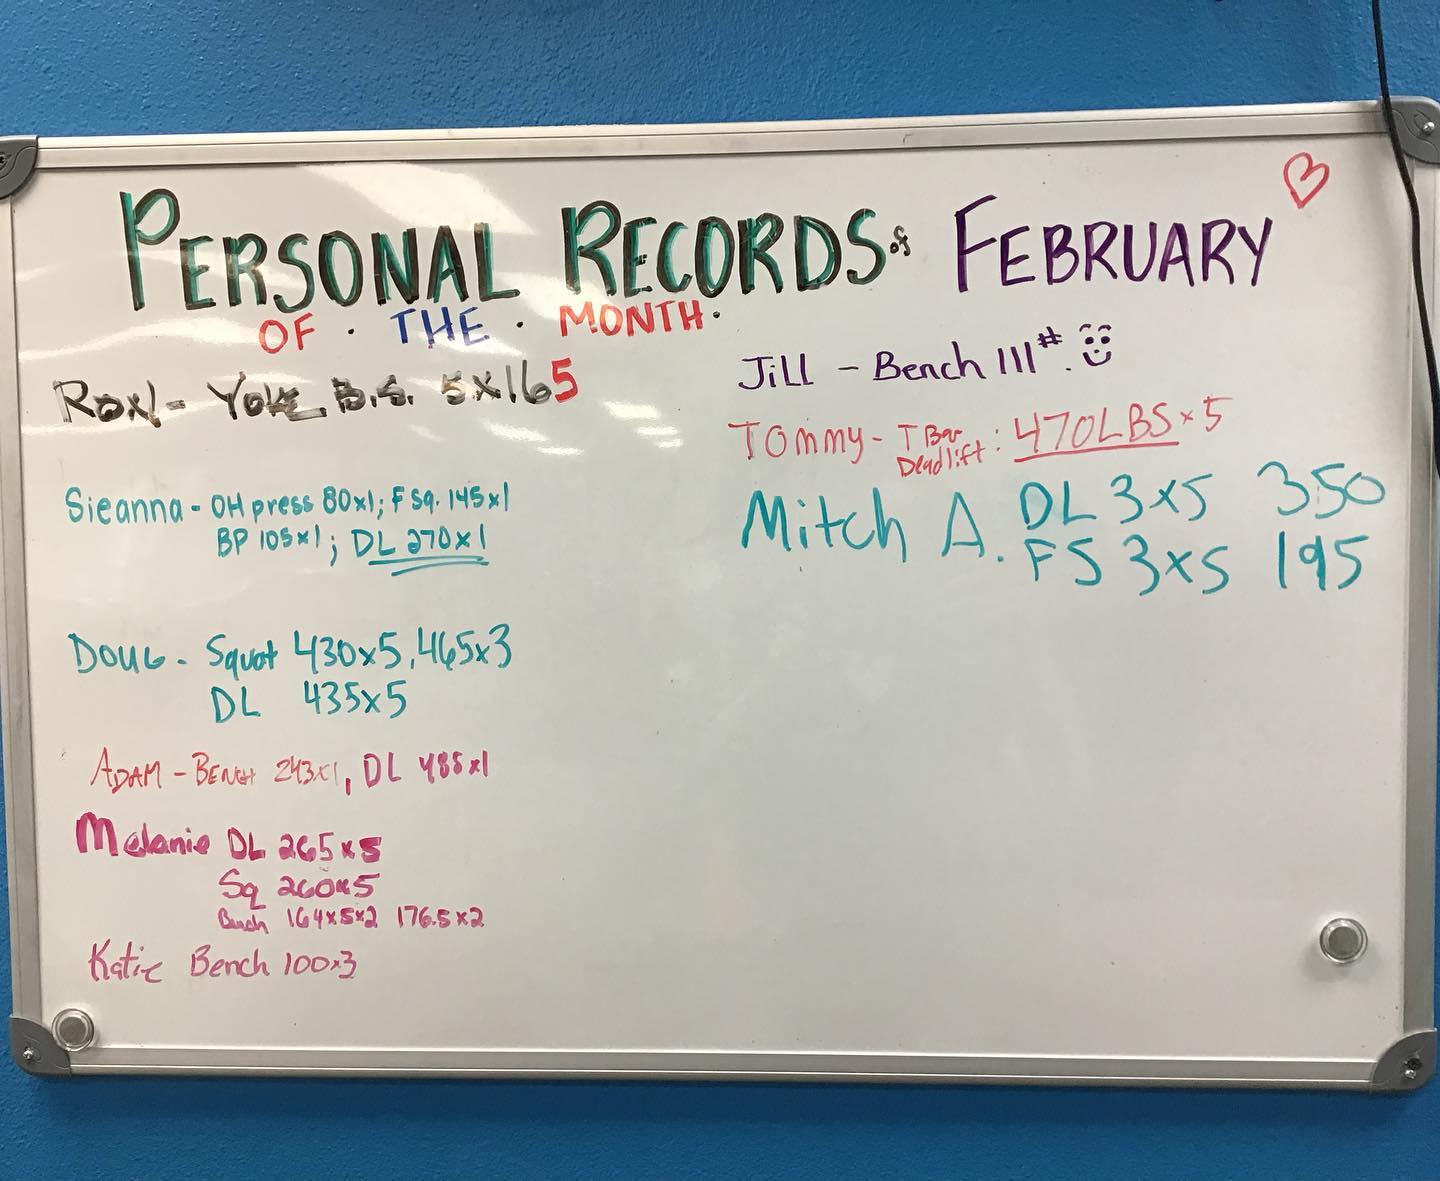 PERSONAL RECORDS of FEBRUARY
OF · THE · MONTH ·
Roxi - Yoke B.S. 5x165
Sieanna - OH press 80x1; F Sq. 145x1
BP 105x1; DL 270x1
DOUG - Squat 430x5, 465x3
DL 435x5
ADAM - BENCH 243x1, DL 485x1
Melanie DL 265x5
Sq 260x5
Bench 164x5x2 176.5x2
Katie Bench 100x3
Jill - Bench 111#.
Tommy - T Bar Deadlift: 470LBS x 5
Mitch A. DL 3x5 350
FS 3x5 195